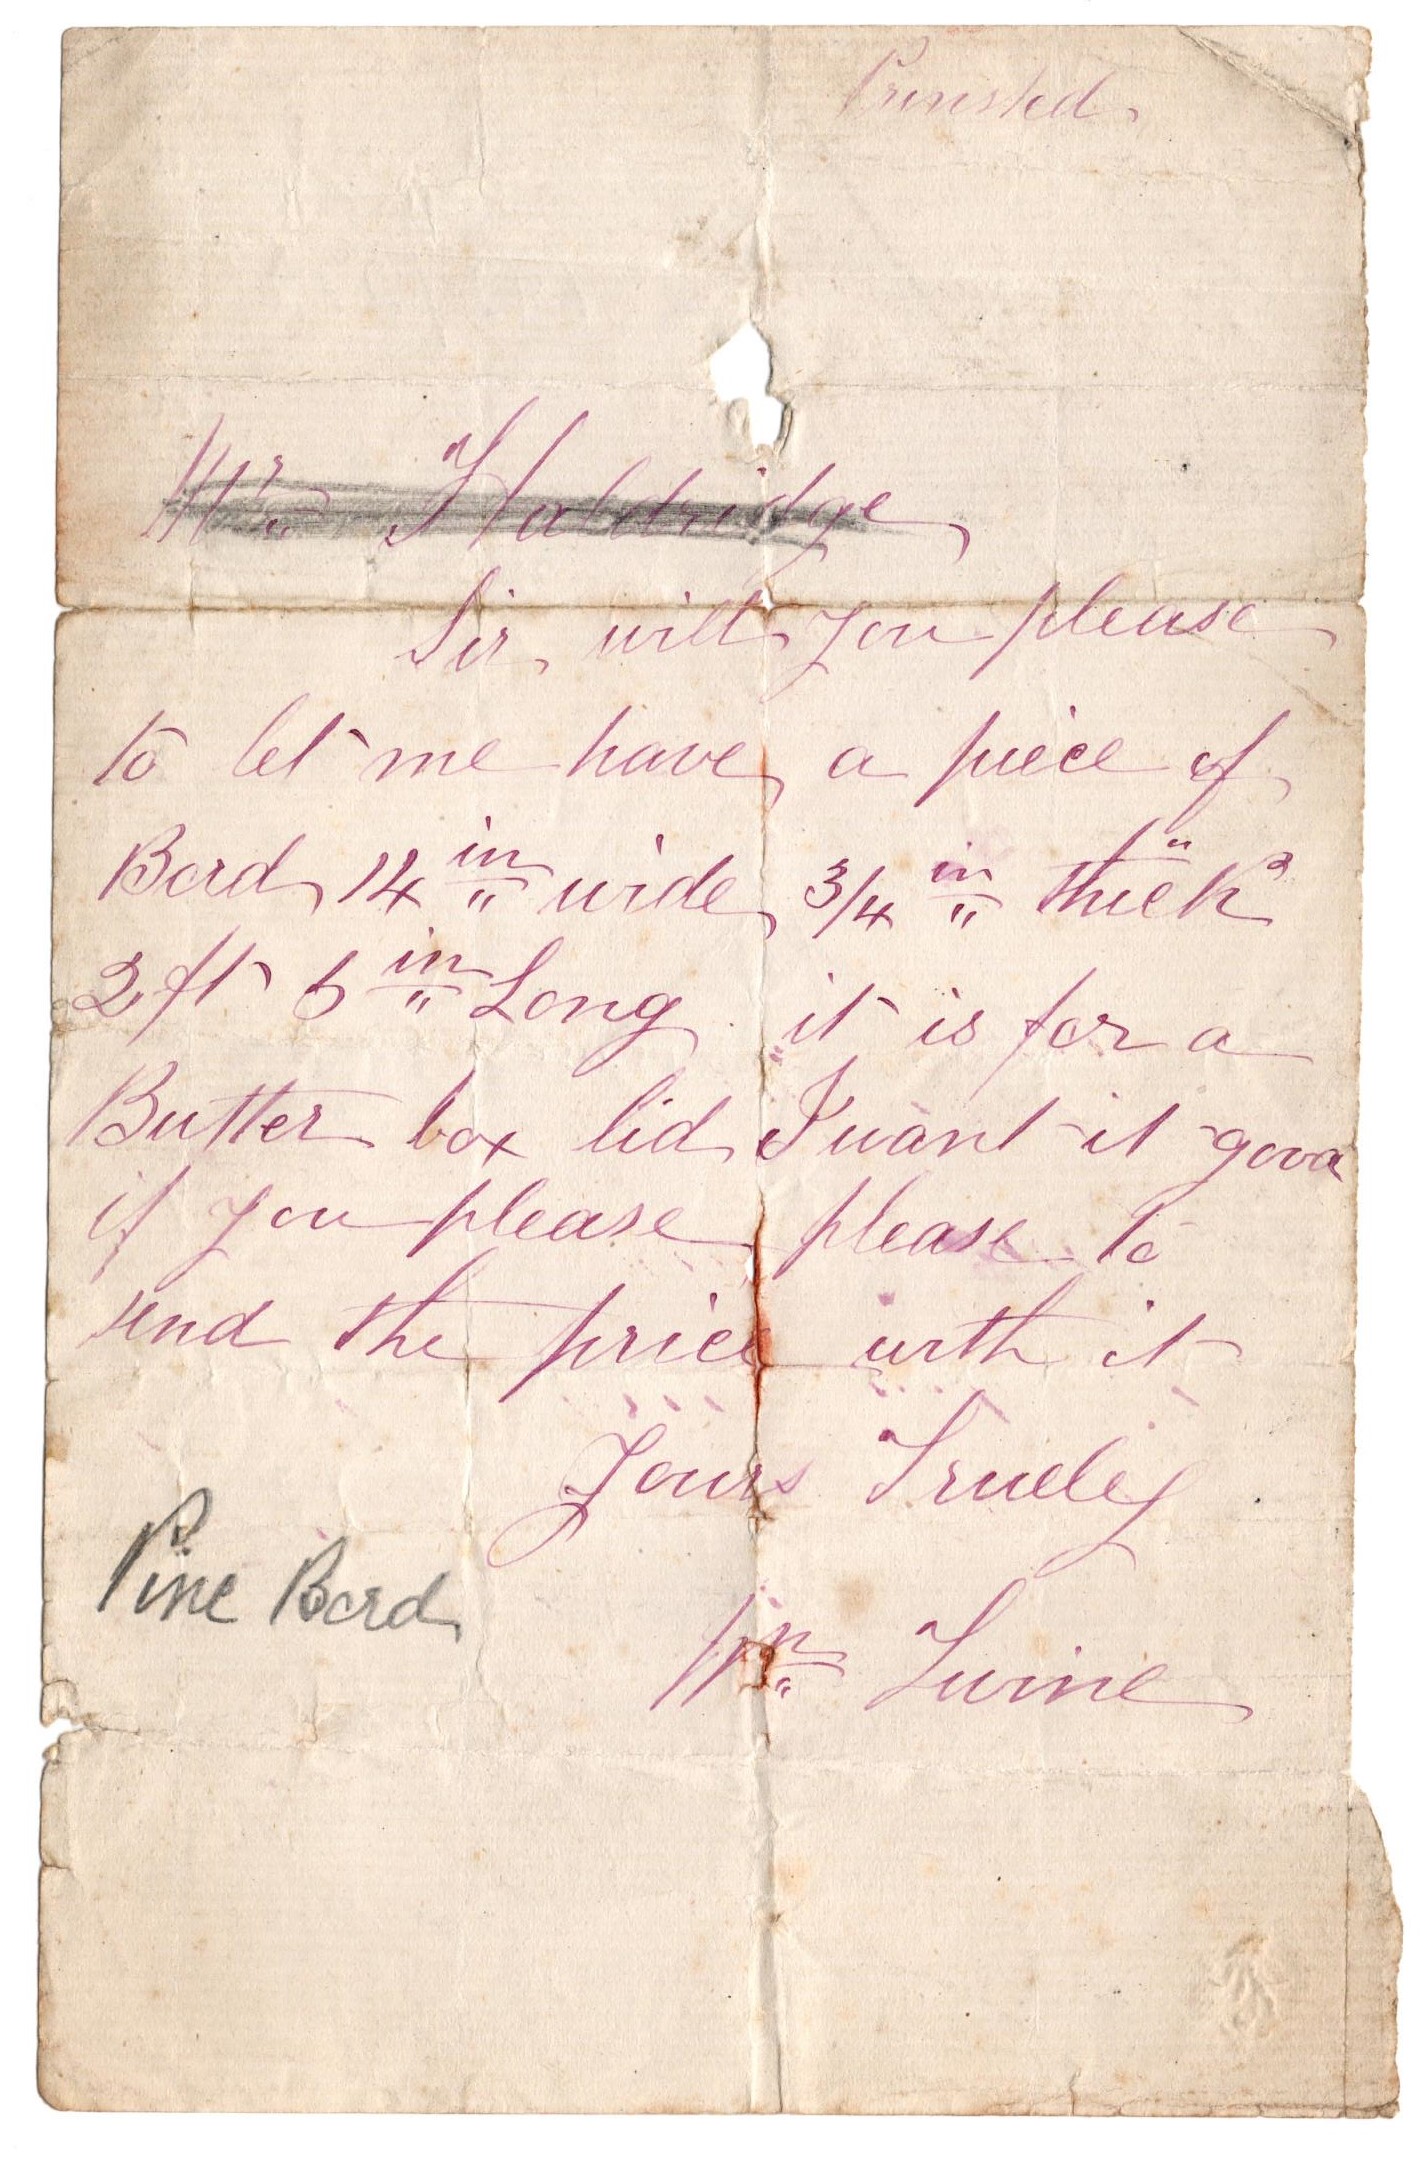 Prinsted.
Mr Haldridge
Sir, will you please
to let me have a piece of
Bord 14 in wide 3/4 in thick
2 ft 6 in Long it is for a
Butter box lid I want it good
if you please please to
send the price with it
Yours Truley
Pine Bord
Wm